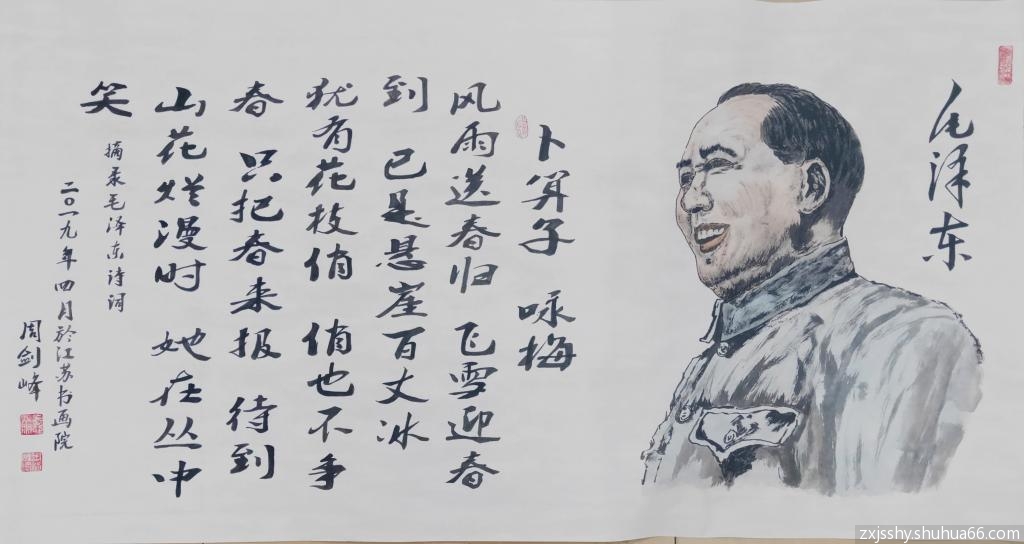 毛泽东
卜算子 咏梅
风雨送春归 飞雪迎春
到 已是悬崖百丈冰
犹有花枝俏 俏也不争
春 只把春来报 待到
山花烂漫时 她在丛中
笑
摘录毛泽东诗词
二〇一九年四月於江苏书画院
周剑峰
zxjsshy.shuhua66.com